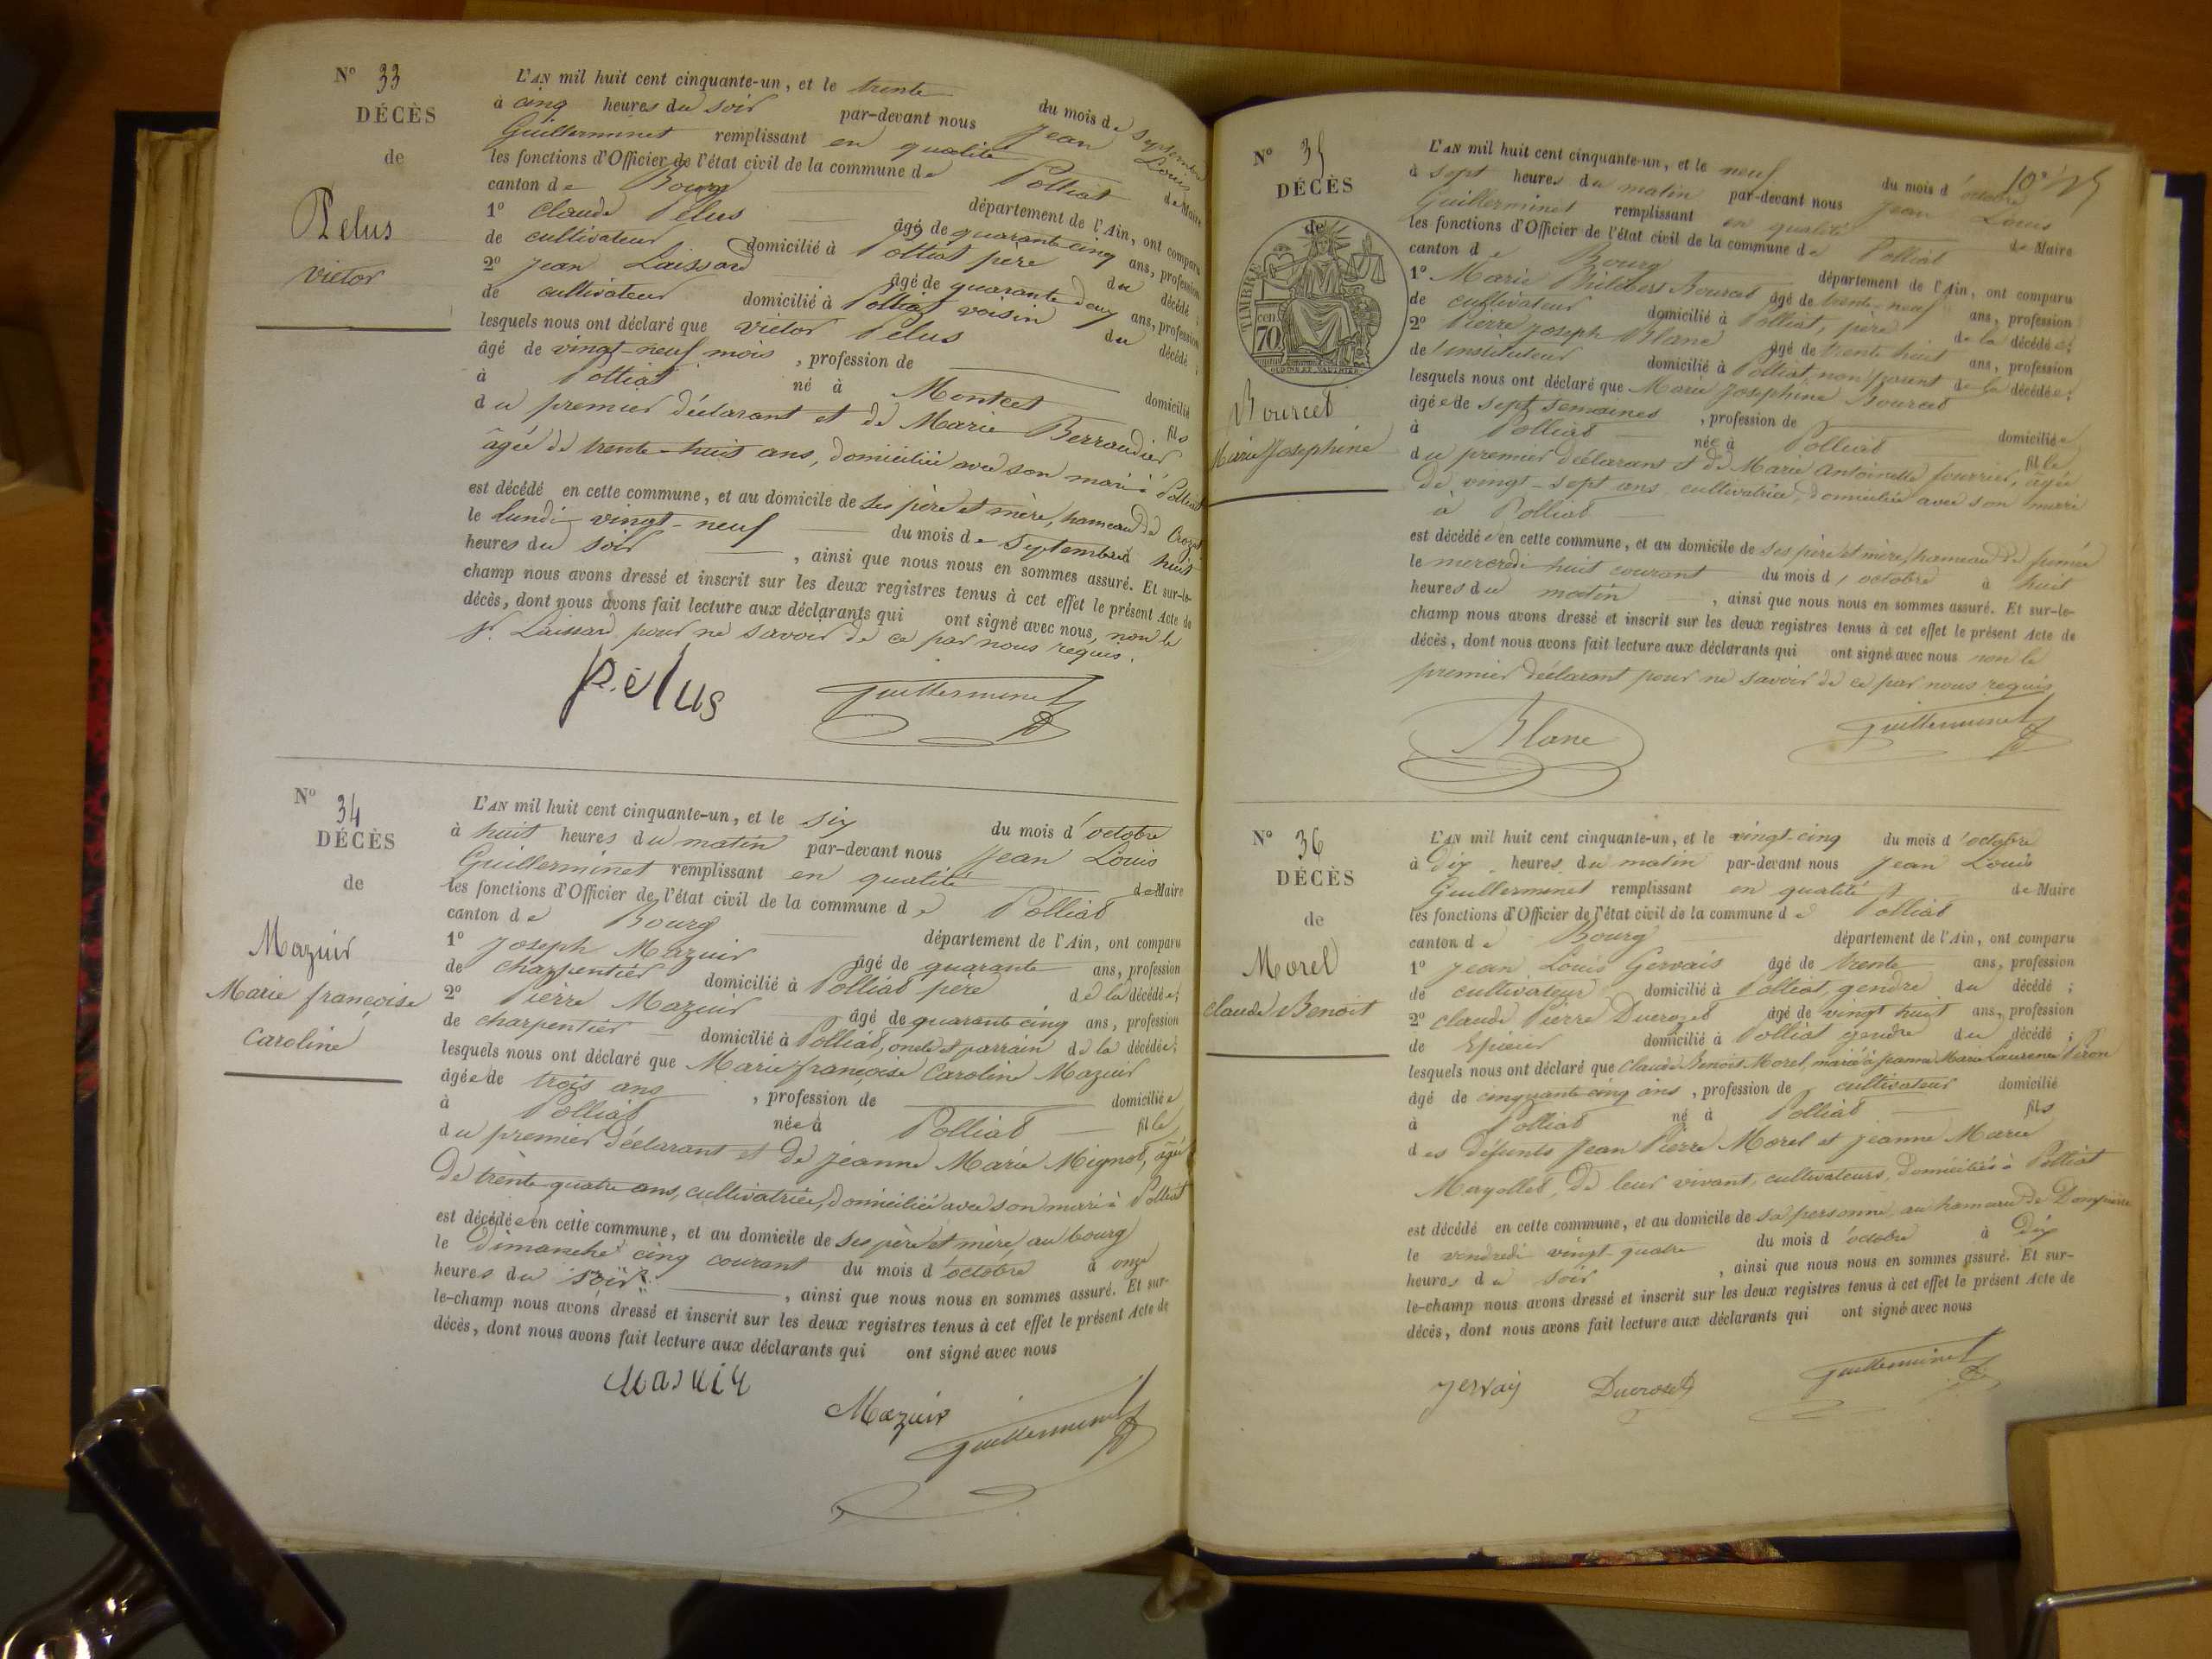 N° 33
DÉCÈS
de
Pelus
victor
L'AN mil huit cent cinquante-un, et le trente du mois de septembre
à cinq heures du soir par-devant nous Jean Louis
Guillerminet remplissant en qualité de Maire
les fonctions d'Officier de l'état civil de la commune de Polliat
canton de Bourg département de l'Ain, ont comparu
1° Claude Pelus âgé de quarante cinq ans, profession
de cultivateur domicilié à Polliat père du décédé ;
2° Jean Laissard âgé de quarante deux ans, profession
de cultivateur domicilié à Polliat voisin du décédé ;
lesquels nous ont déclaré que victor Pelus
âgé de vingt-neuf mois , profession de domicilié
à Polliat né à Montcet fils
du premier déclarant et de Marie Berraudier
âgée de trente-huit ans, domiciliée avec son mari à Polliat
est décédé en cette commune, et au domicile de ses père et mère, hameau de Crozet
le lundi vingt-neuf du mois de septembre à huit
heures du soir , ainsi que nous nous en sommes assuré. Et sur-le-
champ nous avons dressé et inscrit sur les deux registres tenus à cet effet le présent Acte de
décès, dont nous avons fait lecture aux déclarants qui ont signé avec nous, non le
sr. Laissard pour ne savoir de ce par nous requis.
Pélus Guillerminet
N° 34
DÉCÈS
de
Mazuir
Marie françoise
Caroline
L'AN mil huit cent cinquante-un, et le six du mois d'octobre
à huit heures du matin par-devant nous Jean Louis
Guillerminet remplissant en qualité de Maire
les fonctions d'Officier de l'état civil de la commune de Polliat
canton de Bourg département de l'Ain, ont comparu
1° Joseph Mazuir âgé de quarante ans, profession
de charpentier domicilié à Polliat père de la décédée;
2° Pierre Mazuir âgé de quarante cinq ans, profession
de charpentier domicilié à Polliat, oncle et parrain de la décédée;
lesquels nous ont déclaré que Marie françoise Caroline Mazuir
âgée de trois ans , profession de domiciliée
à Polliat née à Polliat fille
du premier déclarant et de jeanne Marie Mignot, âgée
de trente quatre ans, cultivatrice, domiciliée avec son mari à Polliat
est décédée en cette commune, et au domicile de ses père et mère, au bourg
le dimanche cinq courant du mois d'octobre à onze
heures du soir , ainsi que nous nous en sommes assuré. Et sur-
le-champ nous avons dressé et inscrit sur les deux registres tenus à cet effet le présent Acte de
décès, dont nous avons fait lecture aux déclarants qui ont signé avec nous
Masuir
Mazuir Guillerminet
N° 35
DÉCÈS
de
TIMBRE
70
Bourcet
Marie Josephine
L'AN mil huit cent cinquante-un, et le neuf du mois d'octobre
à sept heures du matin par-devant nous Jean Louis
Guillerminet remplissant en qualité de Maire
les fonctions d'Officier de l'état civil de la commune de Polliat
canton de Bourg département de l'Ain, ont comparu
1° Marie Philibert Bourcet âgé de trente-neuf ans, profession
de cultivateur domicilié à Polliat, père de la décédée;
2° Pierre Joseph Blanc âgé de trente huit ans, profession
d'instituteur domicilié à Polliat non parent de la décédée;
lesquels nous ont déclaré que Marie Josephine Bourcet
âgée de sept semaines , profession de domiciliée
à Polliat née à Polliat fille
du premier déclarant et de Marie Antoinette fourrier, âgée
de vingt-sept ans cultivatrice, domiciliée avec son mari
à Polliat
est décédée en cette commune, et au domicile de ses père et mère, hameau de
le mercredi huit courant du mois d'octobre à huit
heures du matin , ainsi que nous nous en sommes assuré. Et sur-le-
champ nous avons dressé et inscrit sur les deux registres tenus à cet effet le présent Acte de
décès, dont nous avons fait lecture aux déclarants qui ont signé avec nous non le
premier déclarant pour ne savoir de ce par nous requis
Blanc Guillerminet
N° 36
DÉCÈS
de
Morel
claude Benoit
L'AN mil huit cent cinquante-un, et le vingt-cinq du mois d'octobre
à dix heures du matin par-devant nous Jean Louis
Guillerminet remplissant en qualité de Maire
les fonctions d'Officier de l'état civil de la commune de Polliat
canton de Bourg département de l'Ain, ont comparu
1° Jean Louis Gervais âgé de trente ans, profession
de cultivateur domicilié à Polliat, gendre du décédé ;
2° claude Pierre Ducrozet âgé de vingt huit ans, profession
de domicilié à Polliat gendre du décédé ;
lesquels nous ont déclaré que Claude Benoit Morel, marié à jeanne Marie Laurence Péron
âgé de cinquante cinq ans , profession de cultivateur domicilié
à Polliat né à Polliat fils
des défunts Jean Pierre Morel et jeanne Marie
Mayollet, de leur vivant, cultivateurs, domiciliés à Polliat
est décédé en cette commune, et au domicile de sa personne au hameau de Dompierre
le vendredi vingt-quatre du mois d'octobre à dix
heures du soir , ainsi que nous nous en sommes assuré. Et sur-
le-champ nous avons dressé et inscrit sur les deux registres tenus à cet effet le présent Acte de
décès, dont nous avons fait lecture aux déclarants qui ont signé avec nous
Jervais Ducroset Guillerminet